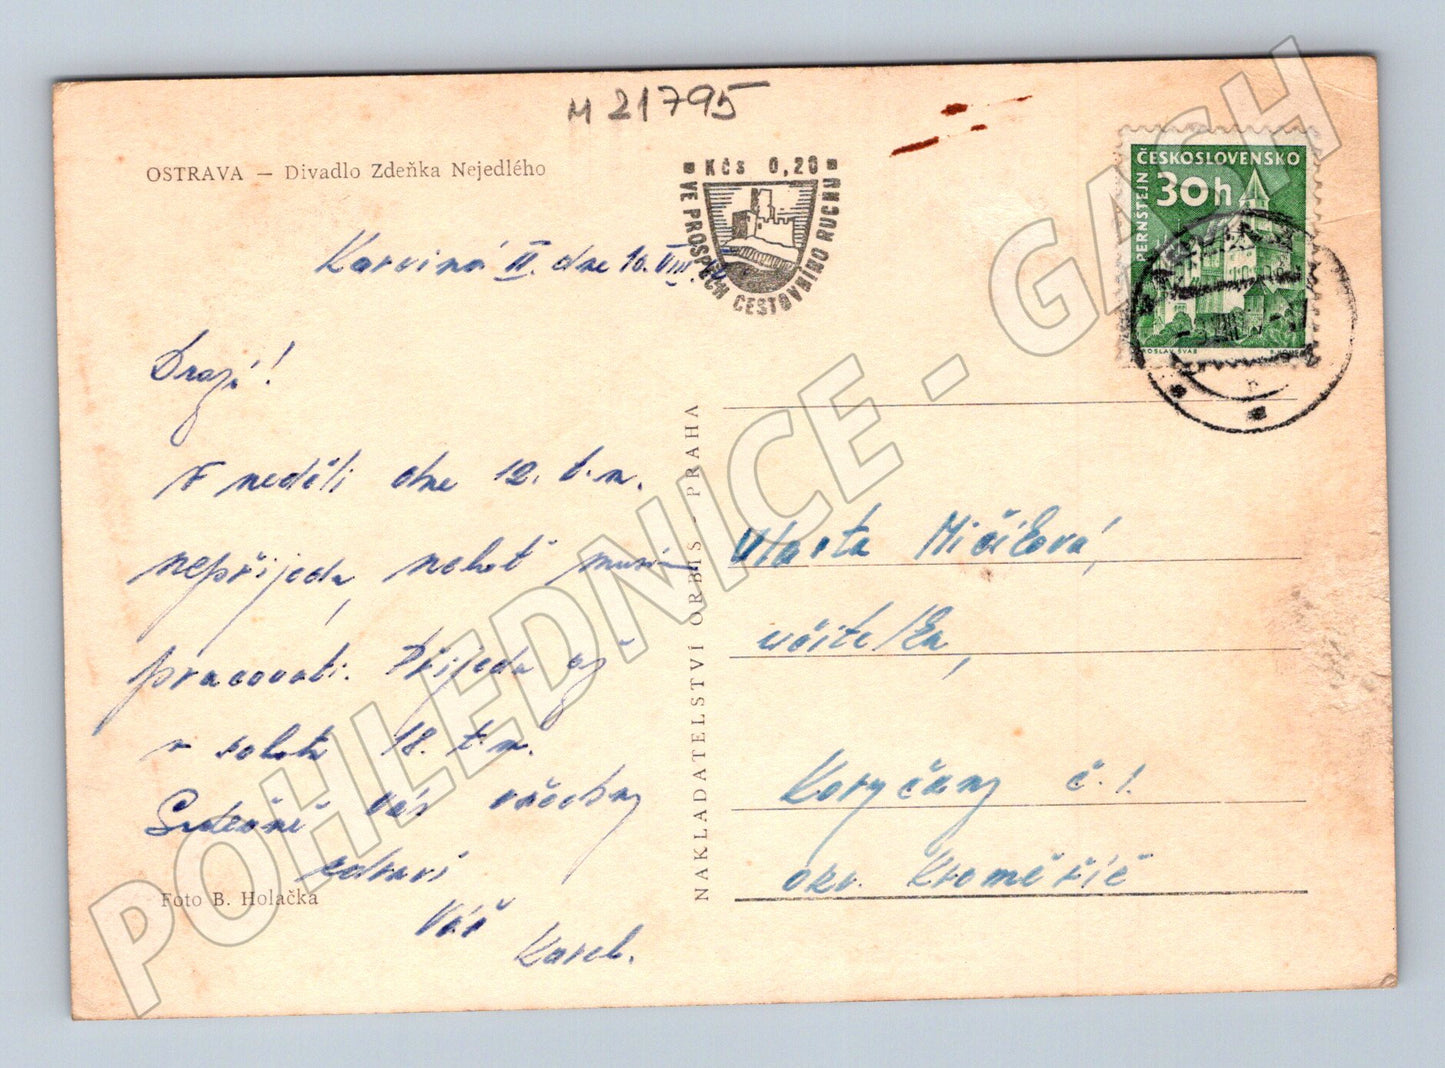 M 21795
OSTRAVA — Divadlo Zdeňka Nejedlého
Kčs 0,20
VE PROSPĚCH CESTOVNÍHO RUCHU
ČESKOSLOVENSKO
30h
PERNŠTEJN
Karviná II. dne 10. VIII.
Drazí!
V neděli dne 12. t.m.
nepřijedu, neboť musím
pracovati. Přijedu až
v sobotu 18. t.m.
Srdečně Vás všechny
zdraví
Váš
Karel.
Foto B. Holačka
NAKLADATELSTVÍ ORBIS - PRAHA
Vlasta Mičíková,
učitelka,
Koryčany č. 1.
okr. Kroměříž
POHLEDNICE - GASH